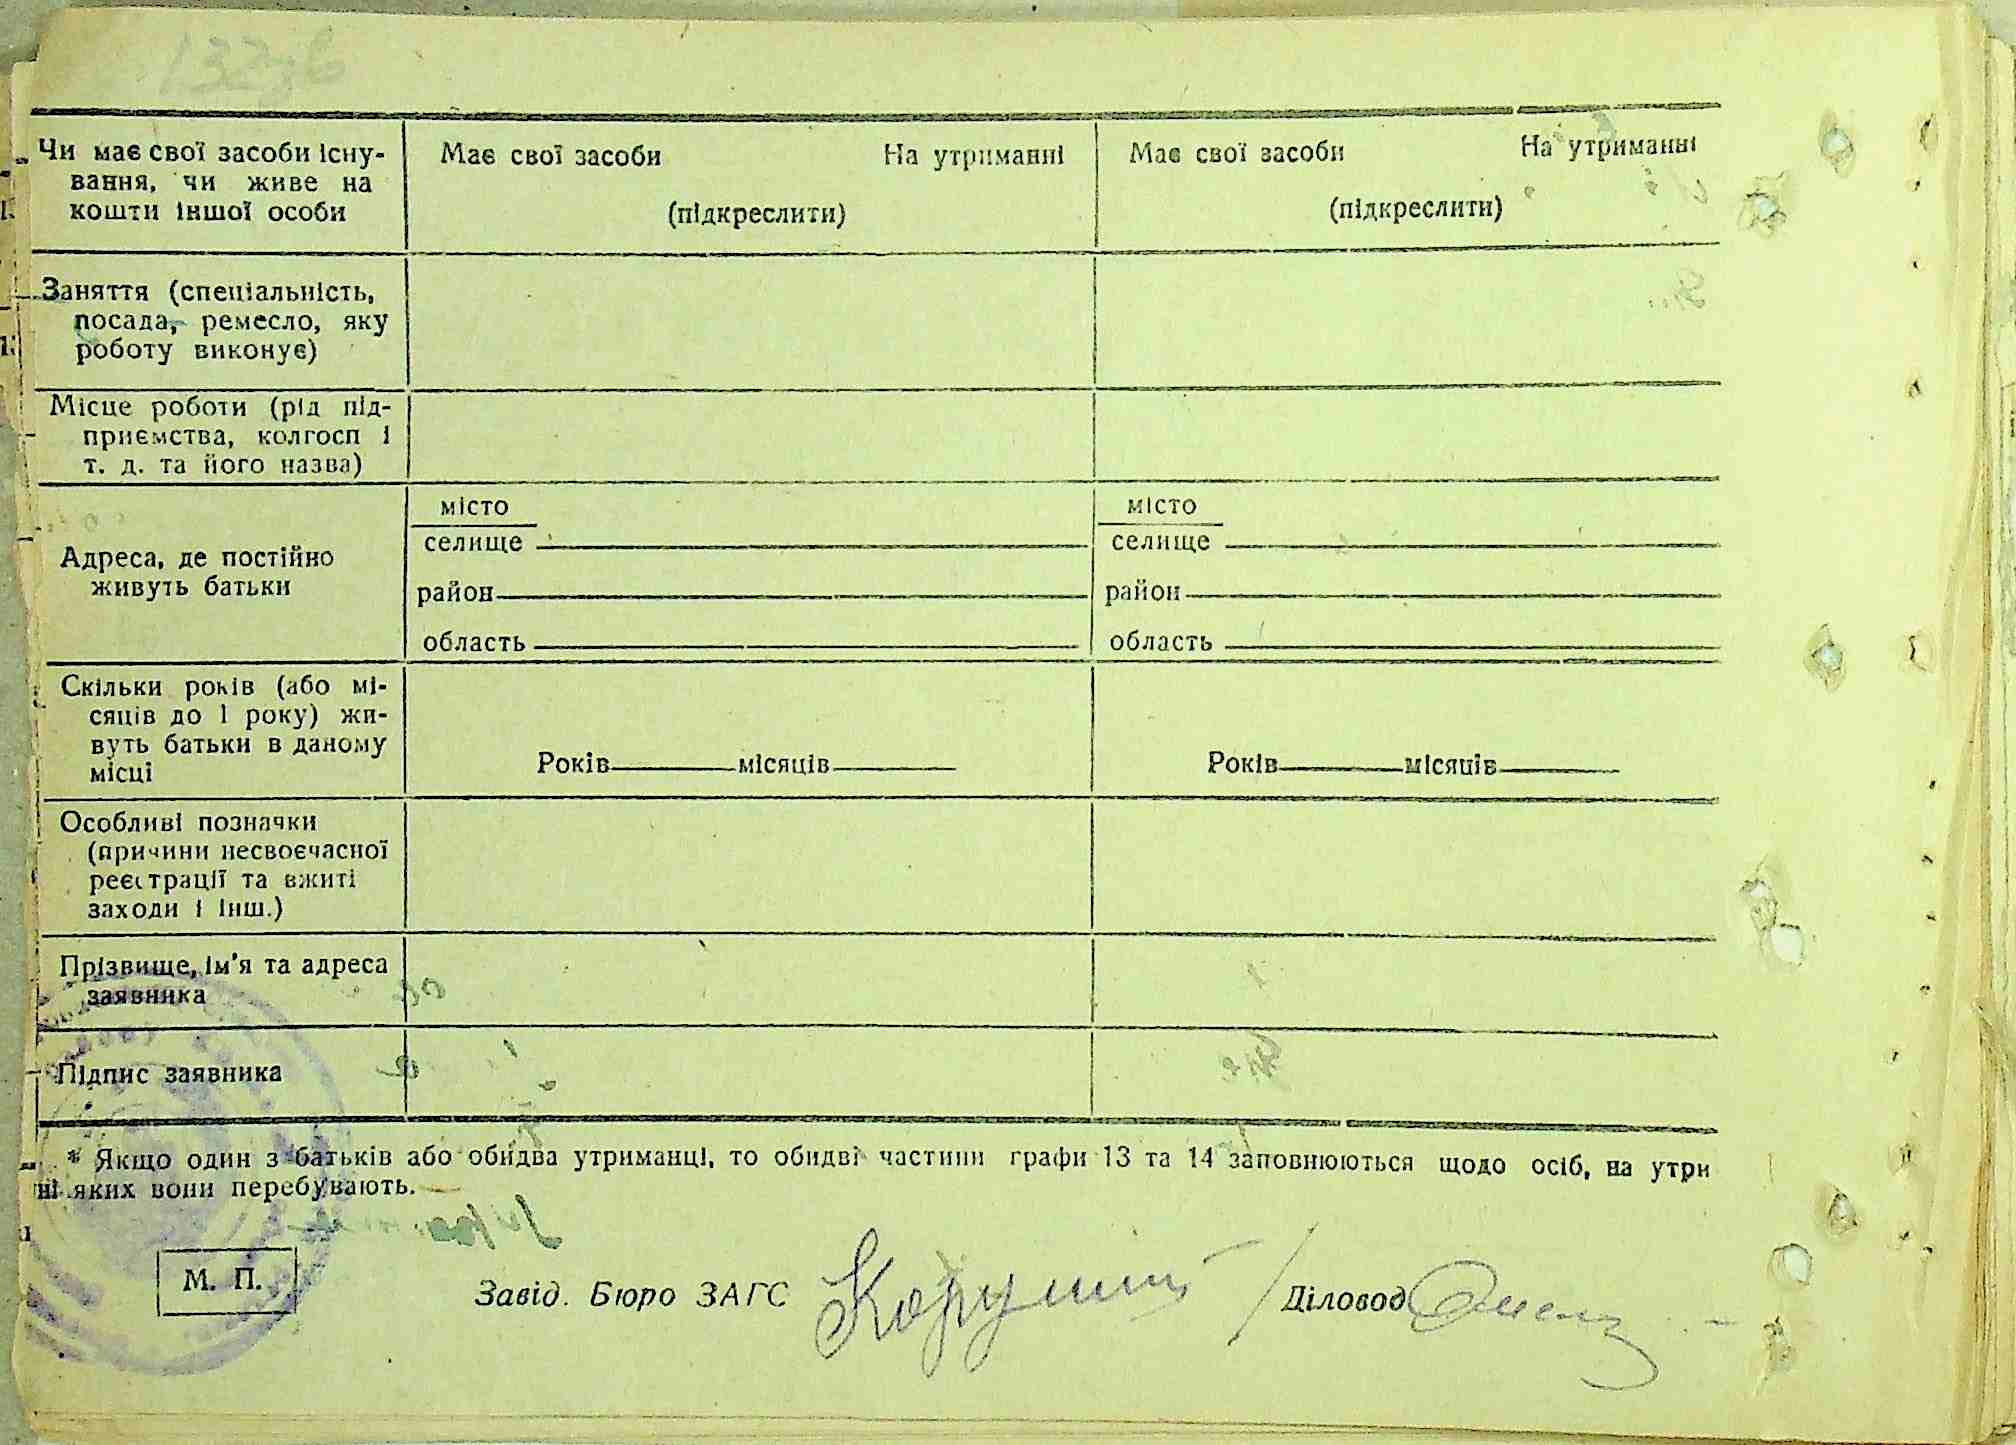 Чи має свої засоби існу-
вання, чи живе на
кошти іншої особи
Має свої засоби На утриманні
(підкреслити)
Має свої засоби На утриманні
(підкреслити)
Заняття (спеціальність,
посада, ремесло, яку
роботу виконує)
Місце роботи (рід під-
приємства, колгосп і
т. д. та його назва)
Адреса, де постійно
живуть батьки
місто
селище
район
область
місто
селище
район
область
Скільки років (або мі-
сяців до 1 року) жи-
вуть батьки в даному
місці
Років місяців
Років місяців
Особливі позначки
(причини несвоєчасної
реєстрації та вжиті
заходи і інш.)
Прізвище, ім'я та адреса
заявника
Підпис заявника
* Якщо один з батьків або обидва утриманці, то обидві частини графи 13 та 14 заповнюються щодо осіб, на утри
ні яких вони перебувають.
М. П.
Завід. Бюро ЗАГС
Діловод